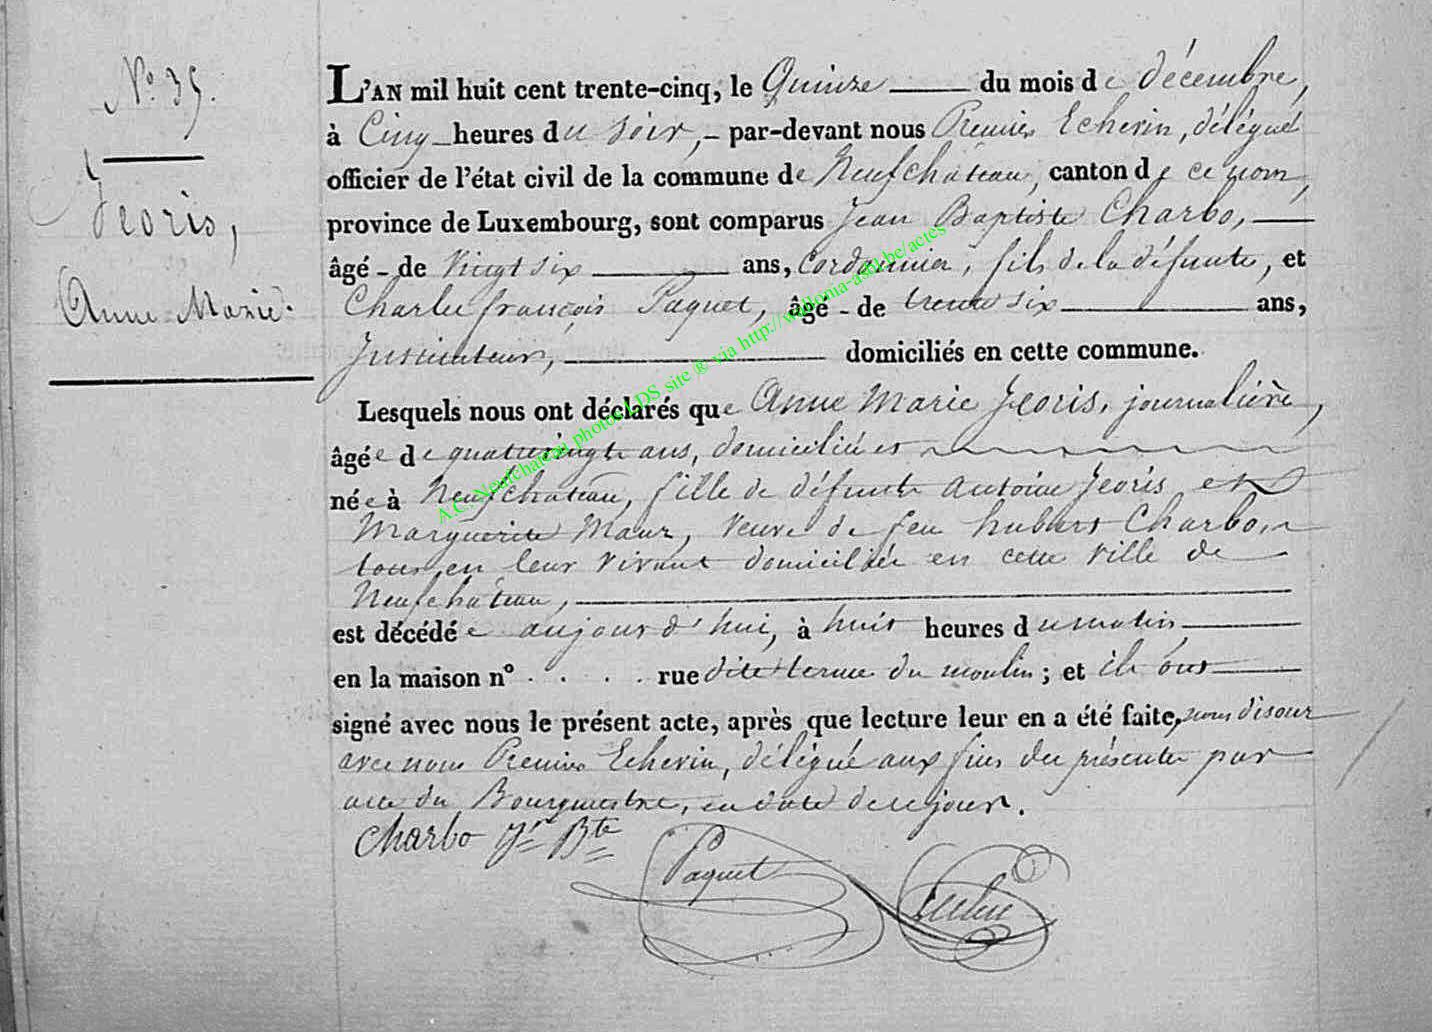 N° 35.
Jeoris,
Anne Marie.
L'AN mil huit cent trente-cinq, le Quinze du mois de décembre,
à Cinq heures du soir, par-devant nous Premier Echevin, délégué
officier de l'état civil de la commune de Neufchâteau, canton de ce nom,
province de Luxembourg, sont comparus Jean Baptiste Charbo,
âgé de Vingt six ans, Cordonnier, fils de la défunte, et
Charles françois Paquet, âgé de trente six ans,
Instituteur, domiciliés en cette commune.
Lesquels nous ont déclarés que Anne Marie Jeoris, journalière,
âgée de quatrevingts ans, domiciliée et
née à Neufchateau, fille de défunts Antoine Jeoris et
Marguerite Maur, veuve de feu hubert Charbo,
tous en leur vivant domiciliés en cette ville de
Neufchâteau,
est décédée aujourd'hui, à huit heures du matin,
en la maison n° . . . . rue dite terme du moulin; et ils ont
signé avec nous le présent acte, après que lecture leur en a été faite, nous disons
avec nous Premier Echevin, délégué aux fins des présentes par
acte du Bourgmestre, en date de ce jour.
Charbo Jn Bte
Paquet
A.C. Neufchateau photos LDS site ® via http://wallonia-asbl.be/actes